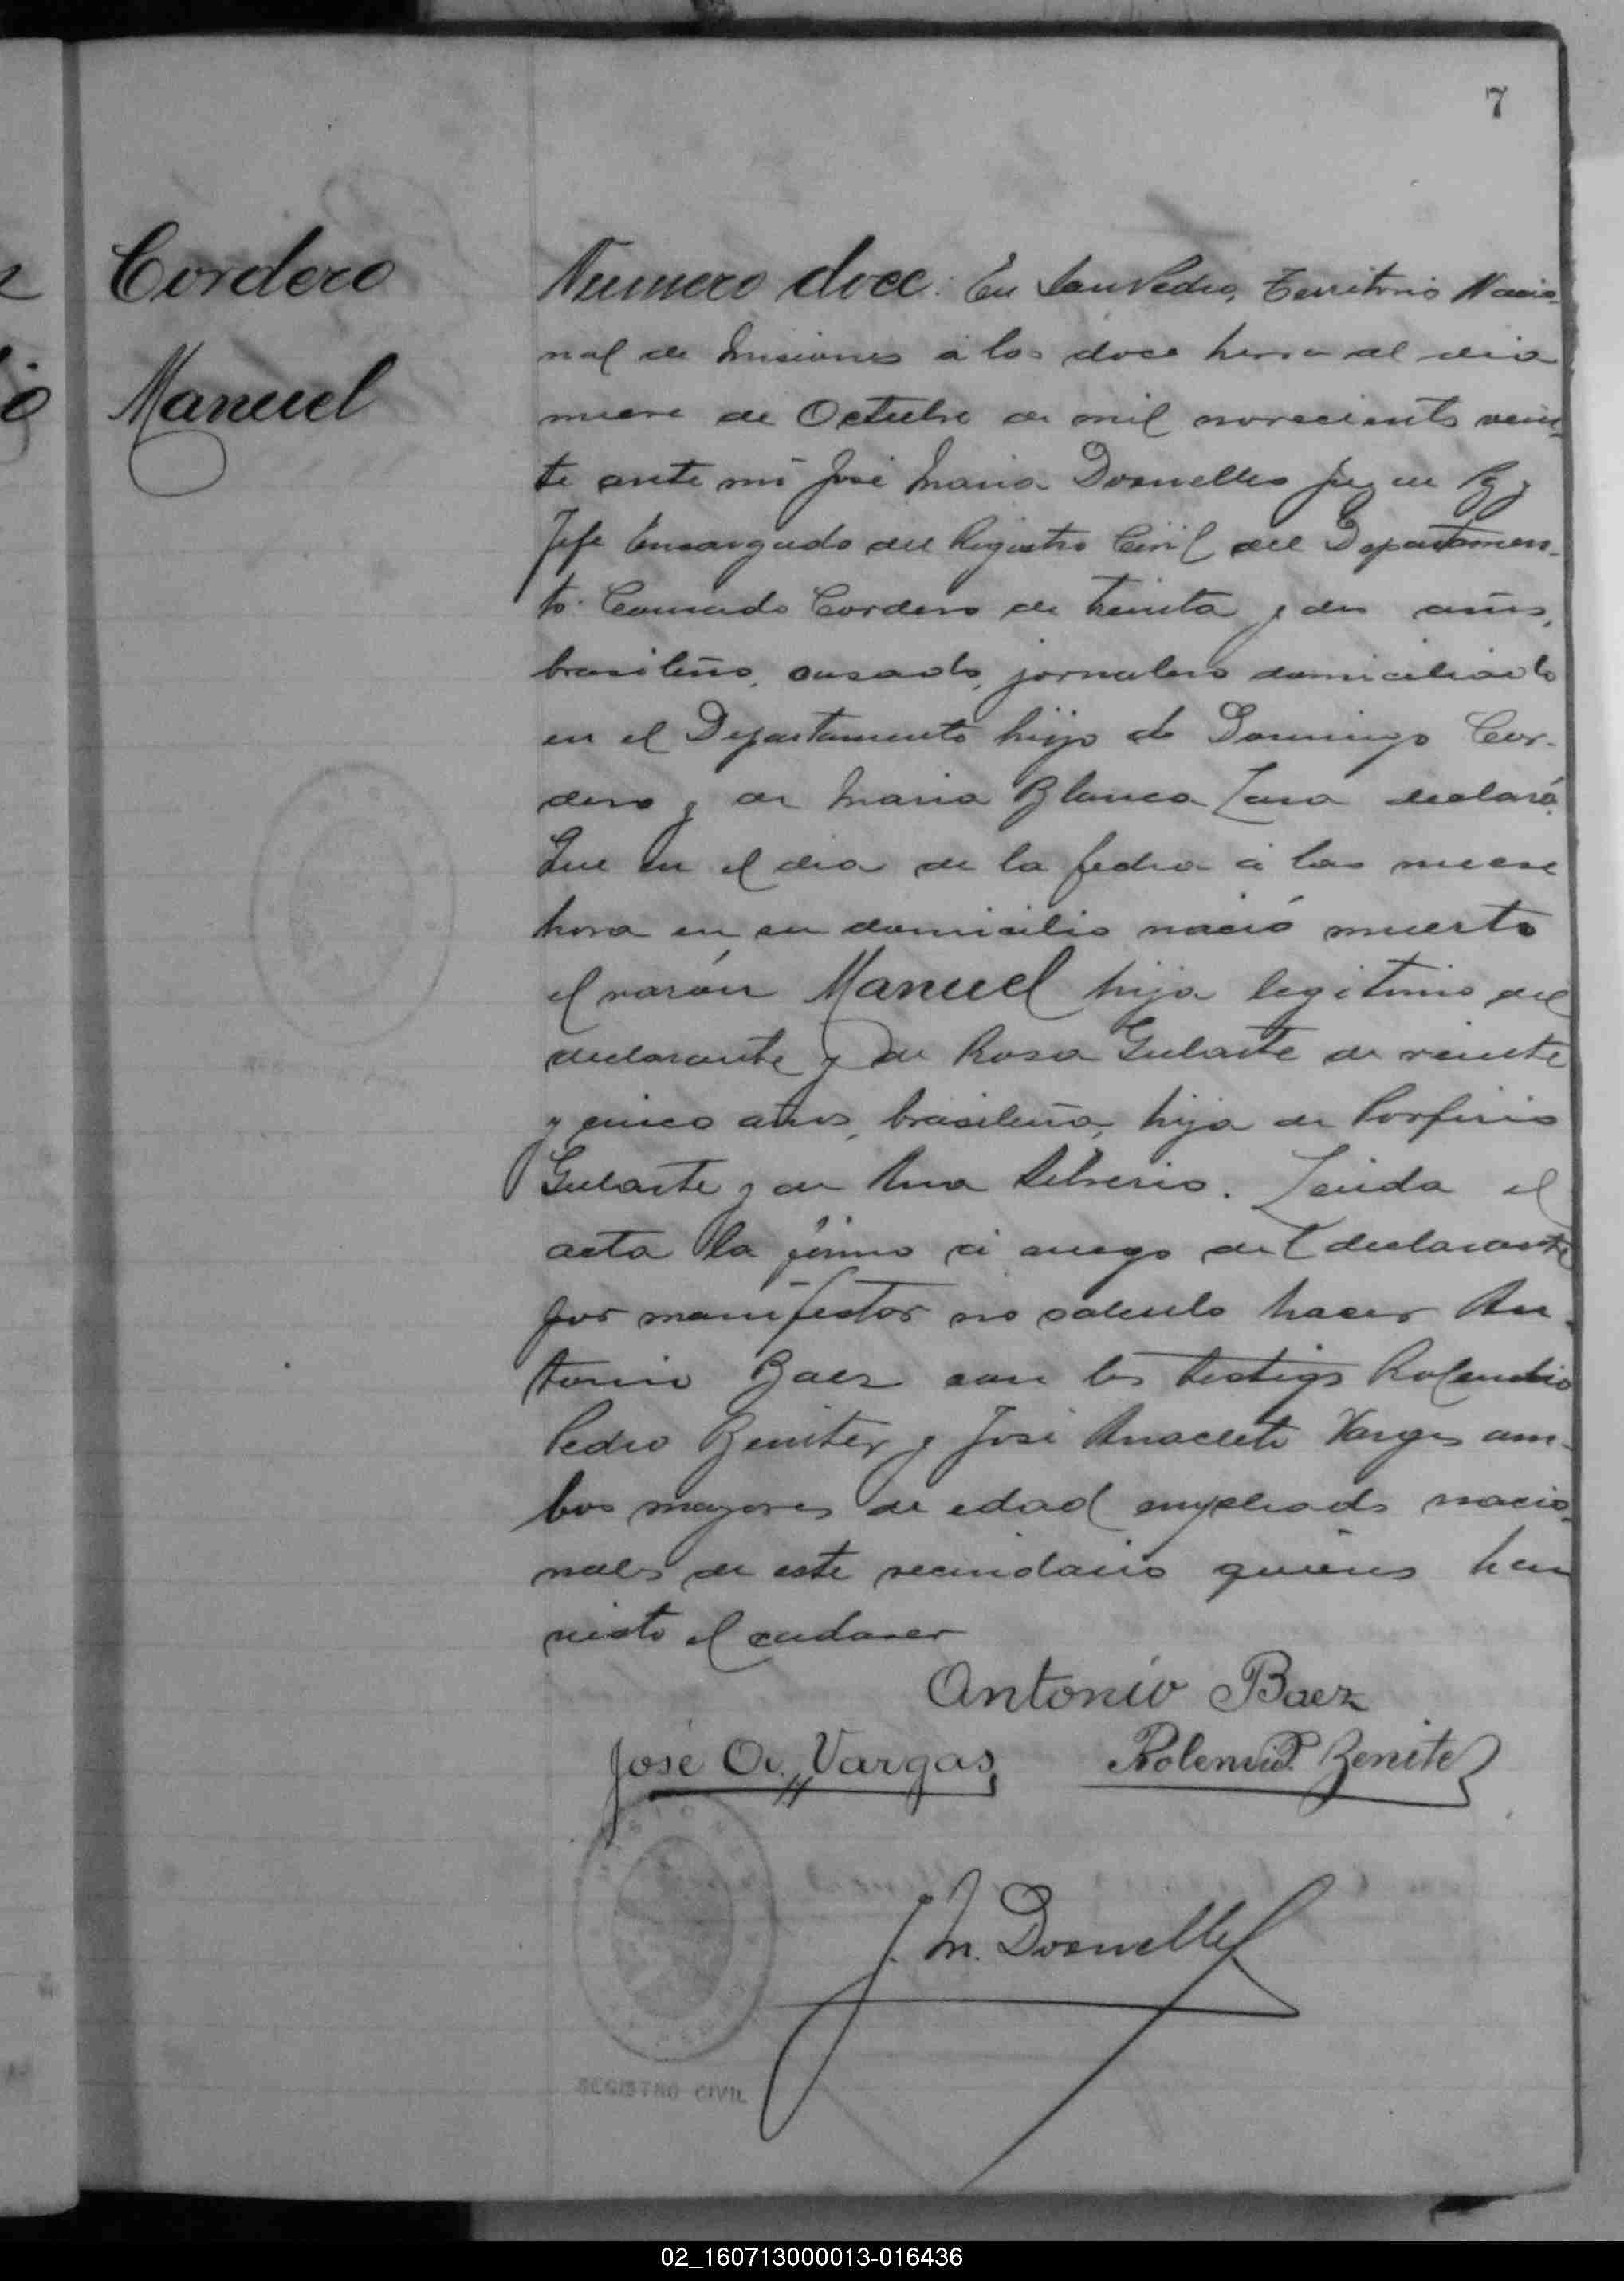 7
Cordero
Manuel
Numero doce. En San Pedro, Territorio Nacio-
nal de Misiones á las doce horas del dia
nueve de Octubre de mil novecientos vein-
te ante mi José Maria Dornelles Juez de Paz y
Jefe Encargado del Registro Civil del Departamen-
to. Conrado Cordero de treinta y dos años,
brasileño, casado, jornalero domiciliado
en el Departamento hijo de Domingo Cor-
dero y de Maria Blanca Lara declaró
Que en el dia de la fecha á las nueve
hora en su domicilio nació muerto
el varón Manuel hijo legitimo del
declarante y de Rosa Gularte de veinte
y cinco años, brasileña, hija de Porfirio
Gularte y de Ana Silverio. Leida el
acta la firmo á ruego del declarante
por manifestar no saberlo hacer An-
tonio Baez con los testigos Rolendio
Pedro Benitez y José Anacleto Vargas am-
bos mayores de edad empleados nacio-
nales de este vecindario quienes han
visto el cadaver
Antonio Baez
José A. Vargas Rolendio P. Benitez
J. M. Dornelles
REGISTRO CIVIL
02_160713000013-016436